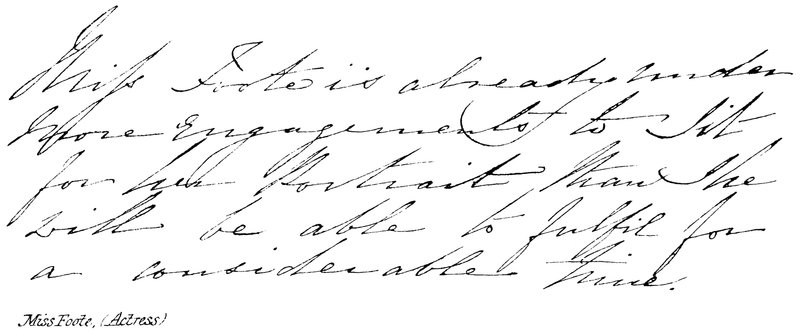 Miss Foote is already under
more engagements to Sit
for her Portrait than She
will be able to fulfil for
a considerable time.
Miss Foote, (Actress)